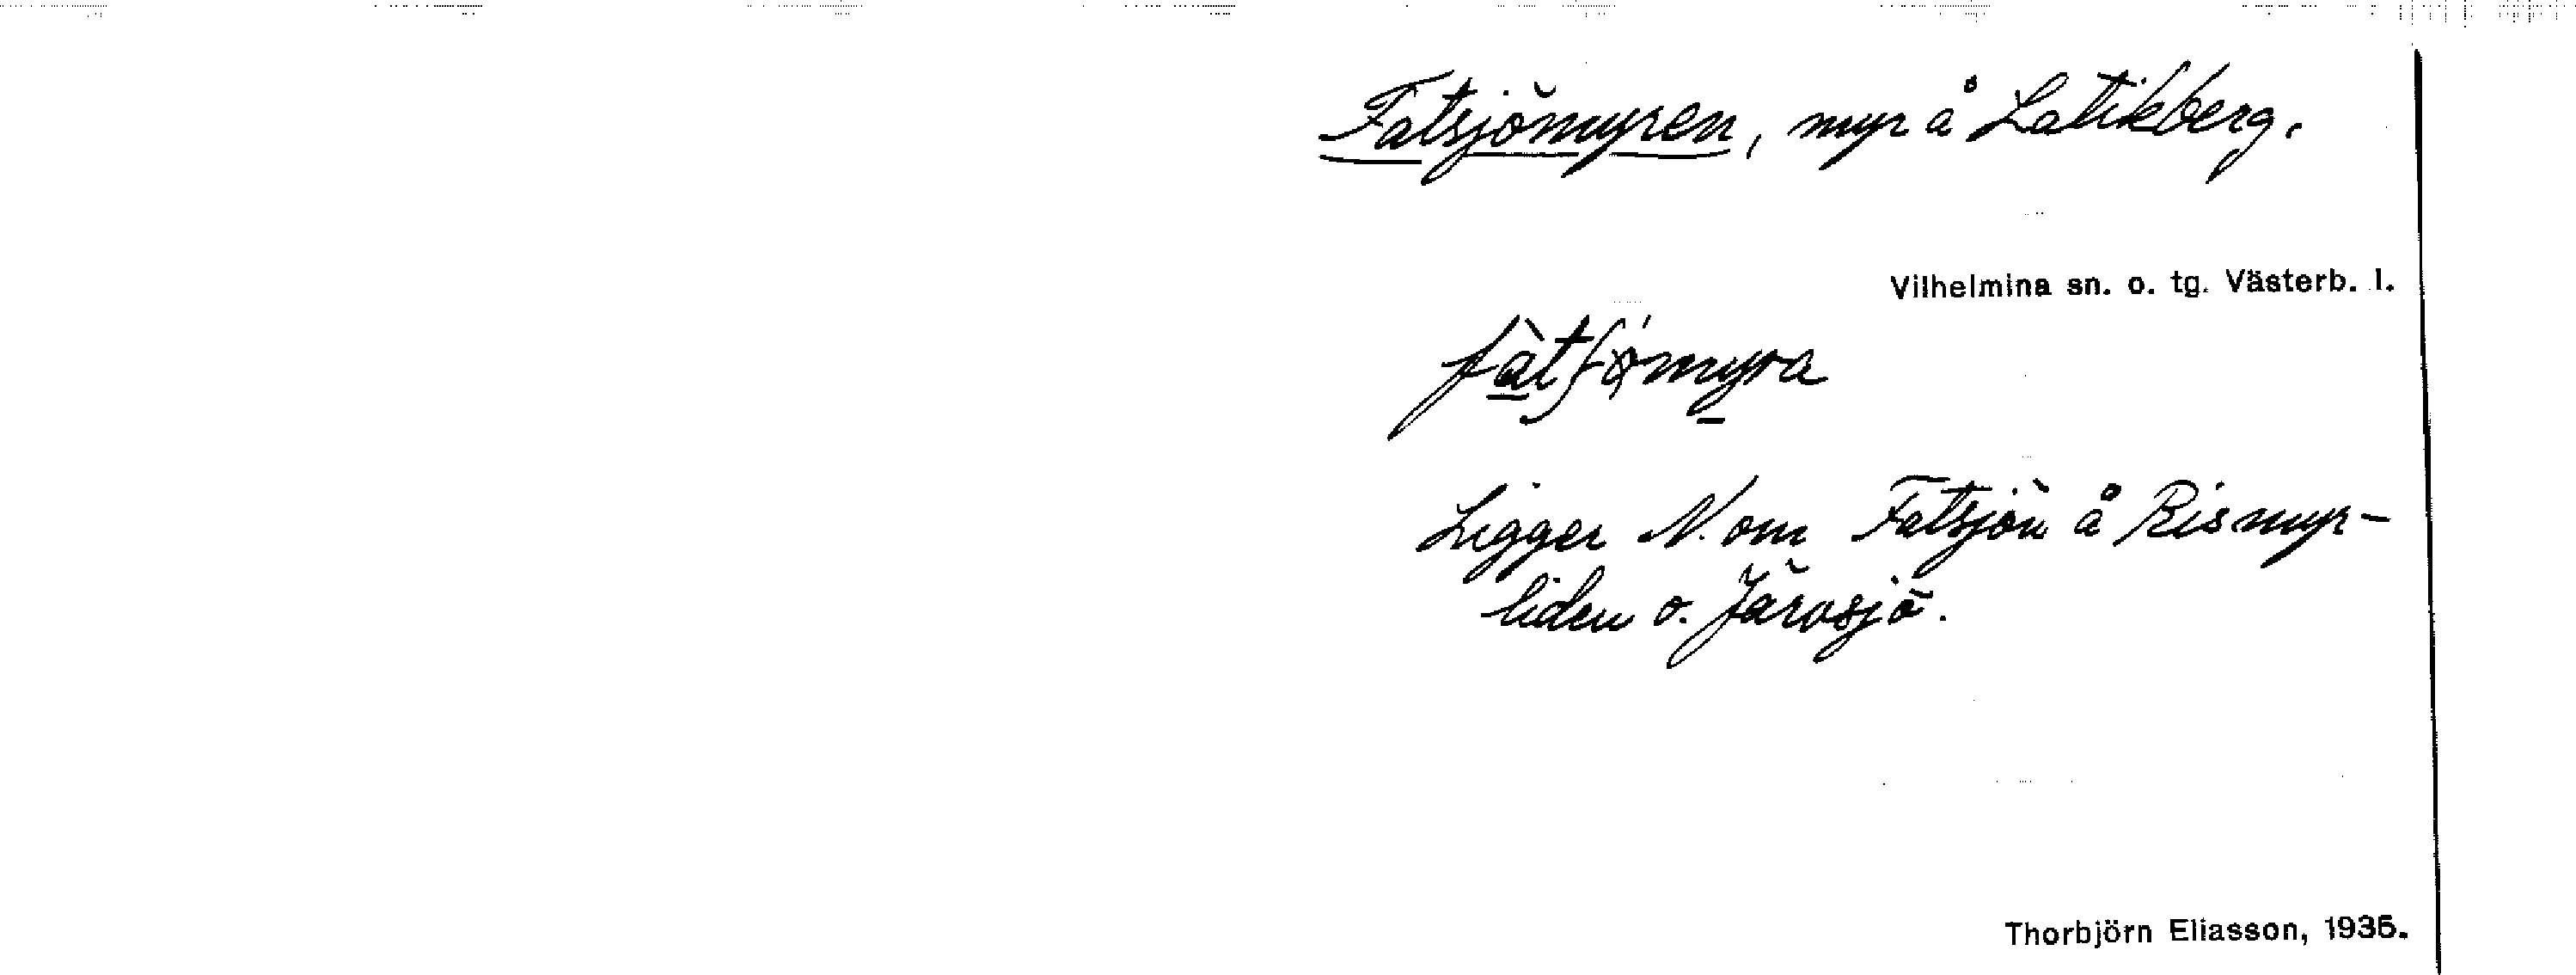 Fatsjömyren, myr å Latikberg.
Vilhelmina sn. o. tg. Västerb. l.
fàtʃø̀myra
Ligger N. om Fatsjön å Rismyr-
liden o. Järvsjö.
Thorbjörn Eliasson, 1935.